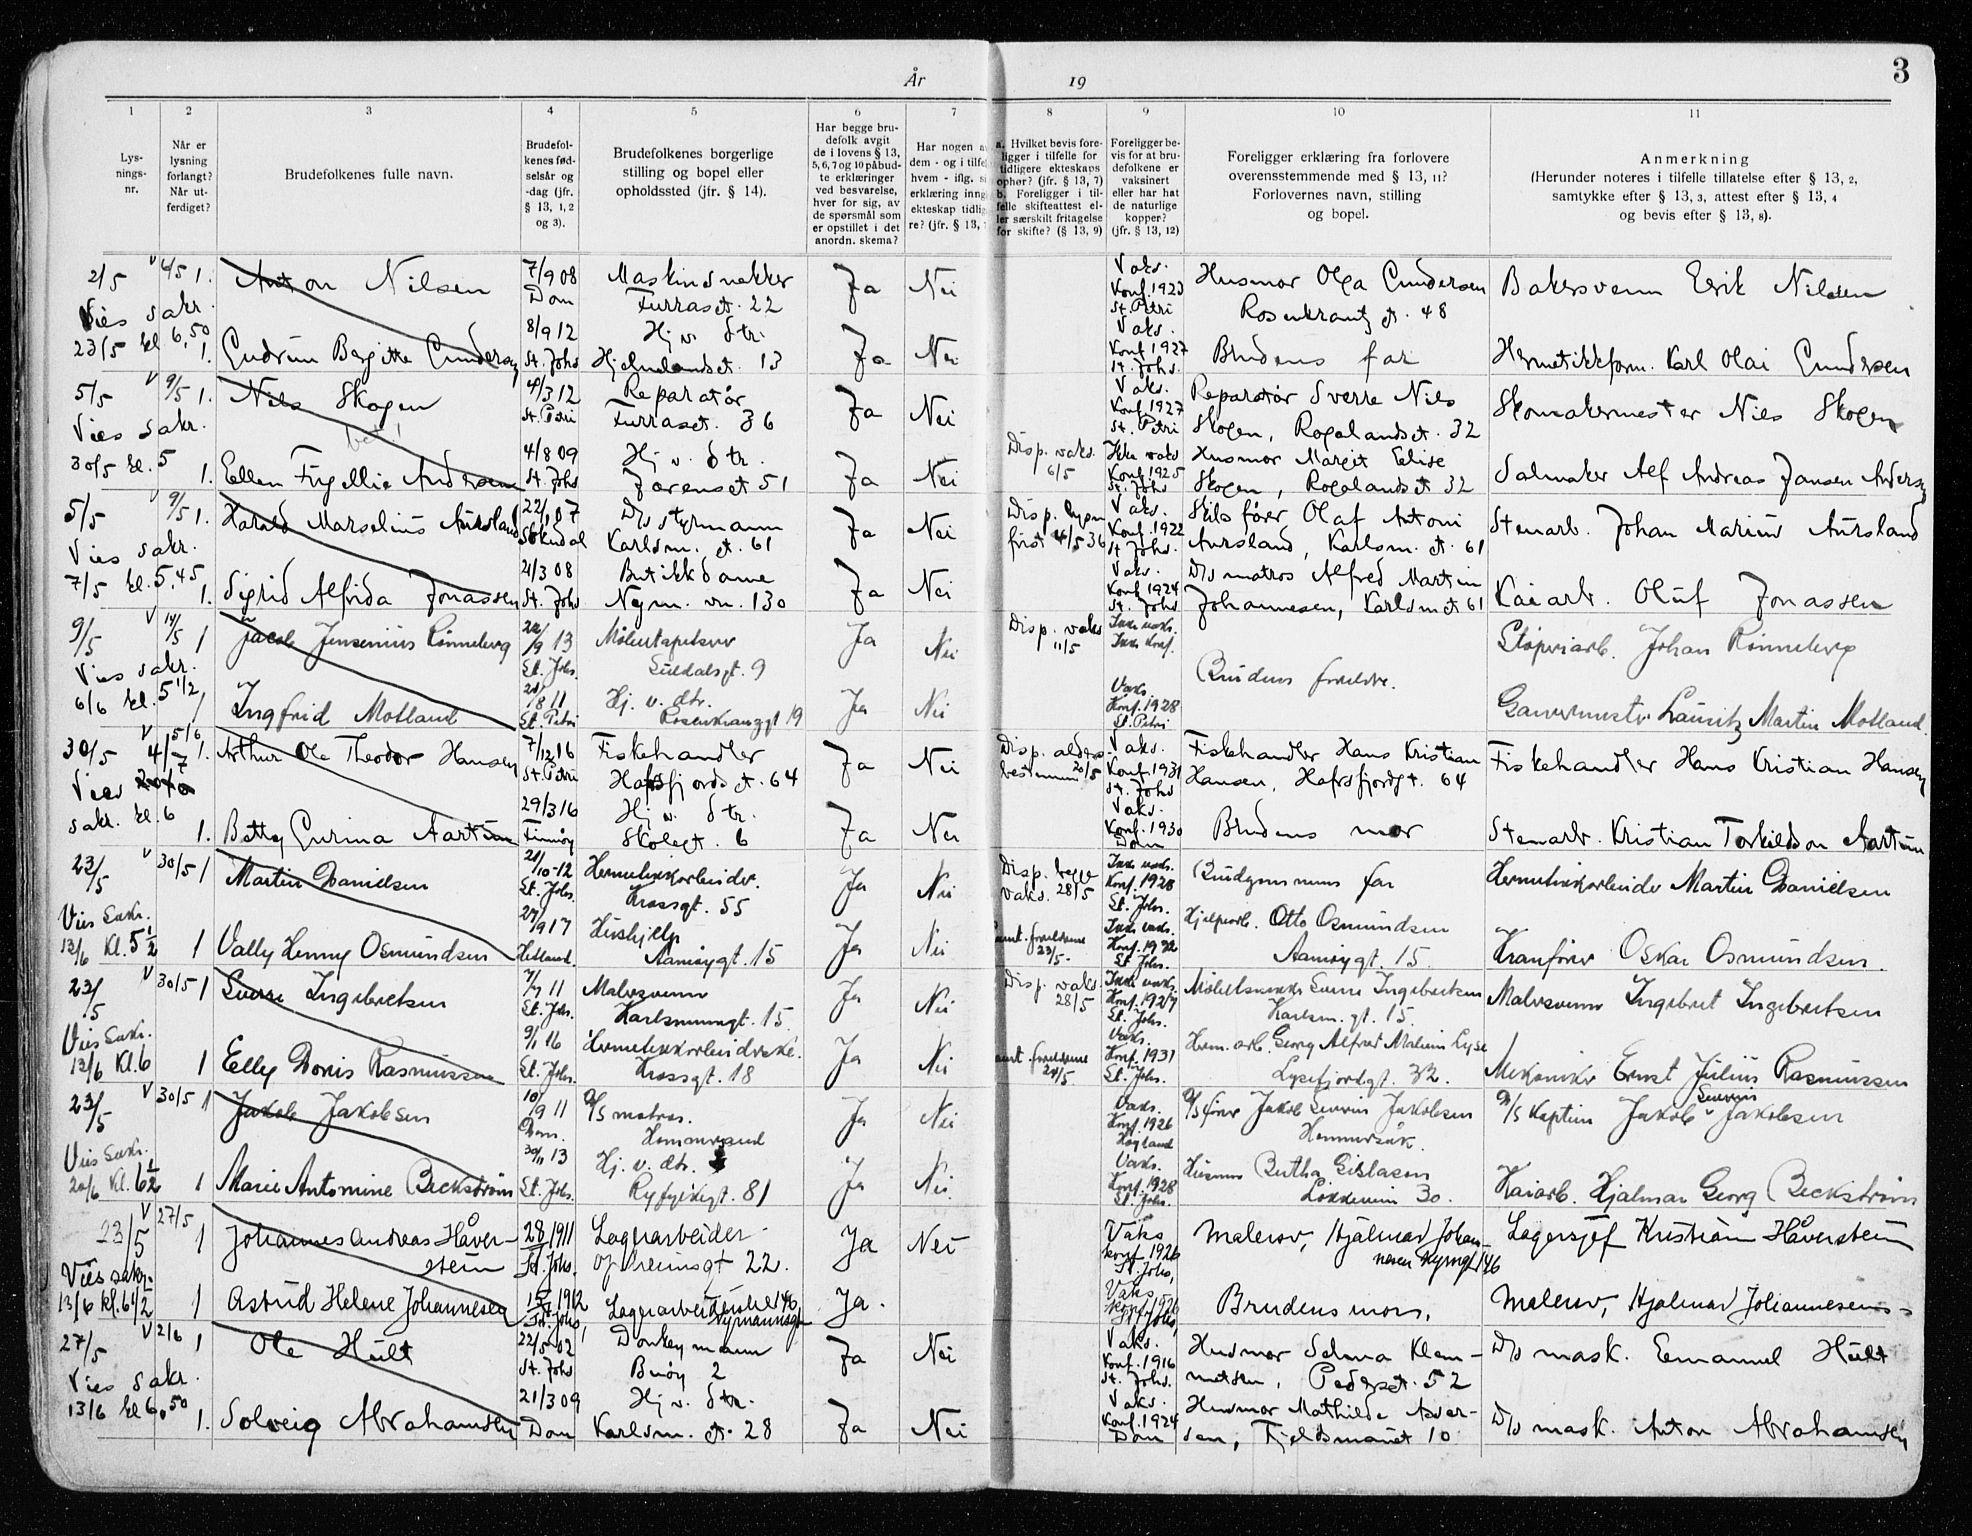 År 19
3
1 2 3 4 5 6 7 8 9 10 11
Lys-
nings-
nr.
Når er
lysning
forlangt?
Når ut-
ferdiget?
Brudefolkenes fulle navn.
Brudefol-
kenes fød-
selsår og
-dag (jfr.
§ 13, 1, 2
og 3).
Brudefolkenes borgerlige
stilling og bopel eller
opholdssted (jfr. § 14).
Har begge bru-
defolk avgit
de i lovens § 13,
5, 6, 7 og 10 påbud-
te erklæringer
ved besvarelse,
hver for sig, av
de spørsmål som
er opstillet i det
anordn. skema?
Har nogen a
dem - og i tilfel
hvem - iflg. si
erklæring inng
ekteskap tidlig
re? (jfr. § 13,
a. Hvilket bevis fore-
ligger i tilfelle for
tidligere ekteskaps
ophør? (jfr. § 13, 7)
b. Foreligger i til-
felle skifteattest el-
ler særskilt fritagelse
for skifte? (§ 13, 9)
Foreligger be-
vis for at bru-
defolkene er
vaksinert
eller har hat
de naturlige
kopper?
(jfr. § 13, 12)
Foreligger erklæring fra forlovere
overensstemmende med § 13, 11?
Forlovernes navn, stilling
og bopel.
Anmerkning
(Herunder noteres i tilfelle tillatelse efter § 13, 2,
samtykke efter § 13, 3, attest efter § 13, 4
og bevis efter § 13, 8).
2/5 V 4/5 1. Anton Nilsen 7/9 08 Dom Maskinsnekker Furraset. 22 Ja Nei Vaks. Konf. 1923 St. Petri Husmor Olga Gundersen Rosenkrantz gt. 48 Bakersvenn Erik Nilsen
Vies sakr.
23/5 kl 6,50 1. Gudrun Bergitte Gundersen 8/9 12 St. Johs Hj. v. dtr. Hjelmelandsgt. 13 Ja Nei Vaks. Konf. 1927 St. Johs. Brudens far Hermetikkform. Karl Olai Gundersen
5/5 V 9/5 1. Nils Skogen 4/3 12 St. Petri Reparatør Furraset. 36 Ja Nei Vaks. Konf. 1927 St. Petri Reparatør Sverre Nils Skogen, Rogalandsgt. 32 Skomakermester Nils Skogen
Vies sakr.
30/5 kl. 5 1. Ellen Andersen 4/8 09 St. Johs Hj. v. dtr. Jærenset 51 Ja Nei Disp. vaks. 6/5 Ikke vaks Konf. 1925 St. Johs Husmor Margit Elise Skogen, Rogalandsgt 32 Salmaker Alf Andreas Jansen Andersen
5/5 V 9/5 1. Harald Marselius Aursland 22/1 07 Sokndal D/s styrmann Karlsm. gt. 61 Ja Nei Disp. lysn. frist 4/5 36 Vaks. Konf. 1922 St. Johs. Skibsfører Olaf Antoni Aursland, Karlsm. gt. 61 Stenarb. Johan Marius Aursland
Vies sakr.
7/5 kl. 5,45 1. Sigrid Alfrida Jonassen 21/3 08 St. Johs Butikkdame Nym. vn. 130 Ja Nei Vaks. Konf. 1924 St. Johs D/s matros Alfred Martin Johannesen, Karlsmgt 61 Kaiarb. Oluf Jonassen
9/5 V 14/5 1 Jacob Jensenius Rønneberg 22/9 13 St. Johs. Møbeltapetserer Suldalsgt. 9 Ja Nei Disp. vaks 11/5 Ikke vaks. Ikke konf. Brudens foreldre. Støperiarb. Johan Rønneberg
Vies sakr.
6/6 kl. 5 1/2 1 Ingfrid Motland 20/8 11 St. Petri Hj. v. dtr. Rosenkranzgt 19 Ja Nei Vaks. Konf. 1928 St. Petri Garvermester Lauritz Martin Motland.
30/5 V 5/6 4/7 1. Arthur Ole Theodor Hansen 7/12 16 St. Petri Fiskehandler Hafrsfjordsgt. 64 Ja Nei Disp. alders bestemm 20/5 Vaks. Konf. 1931 St. Johs Fiskehandler Hans Kristian Hansen, Hafrsfjordgt. 64 Fiskehandler Hans Kristian Hansen
Vies
sakr. kl. 6 1. Betty Gurina Aartun 29/3 16 Finnøy Hj. v. dtr. Skolegt. 6 Ja Nei Vaks. Konf. 1930 Dom Brudens mor Stenarb. Kristian Torkildson Aartun
23/5 V 30/5 1 Martin Danielsen 21/10-12 St. Johs. Hermetikkarbeider. Krossgt. 55 Ja Nei Disp. begge vaks. 28/5 Ikke vaks. Konf. 1928 St. Johs. Brudgommens far Hermetikkarbeider Martin Danielsen
Vies Sakr.
13/6 Kl. 5 1/2 1 Vally Henny Osmundsen 27/9 17 Hetland. Hushjelp Aamøygt. 15 Ja Nei Samt. foreldrene 23/5. Ikke vaks. Konf. 1932 St. Johs. Hjelpearb. Otto Osmundsen Aamøygt. 15. Kranfører Oskar Osmundsen.
23/5 V 30/5 1 Sverre Ingebretsen 7/7 11 St. Johs. Malersvenn Karlsmmmgt. 15. Ja Nei Disp. vaks. 28/5 Ikke vaks. Konf. 1927 St. Johs. Møbelsnekker Sverre Ingebretsen Karlsm. gt. 15. Malersvenn Ingebret Ingebretsen
Vies Sakr.
13/6 Kl. 6 1 Elly Doris Rasmussen 9/1 16 St. Johs. Hermetikkarbeiderske. Krossgt. 18 Ja Nei Samt. foreldrene 24/5 Vaks. Konf. 1931 St. Johs. Herm. arb. Georg Alfred Malvin Lyse Lysefjordgt. 32. Mekaniker Ernst Julius Rasmussen
23/5 V 30/5 1 Jakob Jakobsen 10/9 11 Dom. D/S matros. Hommersand Ja Nei Vaks. Konf. 1926 Høgland D/S fører Jakob Severin Jakobsen Hommersåk. D/S Kaptein Jakob Severin Jakobsen
Vies Sakr.
20/6 Kl. 6 1/2 1 Marie Antomine Beckstrøm 30/11 13 St. Johs. Hj. v. dtr. Ryfylkegt. 81 Ja Nei. Vaks. Konf. 1928 St. Johs. Husmor Bertha Gislasen Løkkeveien 30. Kaiarb. Hjalmar Georg Beckstrøm
23/5 V 27/5 1 Johannes Andreas Håver-stein 28 1911 St. Johs. Lagerarbeider Opheimsgt 22. Ja Nei Vaks konf. 1926 St. Johs, Malersv, Hjalmar Johan-nesen Nymgt 146 Lagersjef Kristian Håverstein
Vies sakr.
13/6 kl. 6 1/2 1 Astrid Helene Johannesen 1912 St. Johs, Lagerarbeiderske 146 Nymannsgt Ja. Vaks konf. 1926 St. Johs, Brudens mor, Malersv, Hjalmar Johannesen
27/5 V 2/6 1 Ole Hult 22/5-02 St. Johs Donkeymann Buøy 2 Ja Nei Vaks. Konf. 1916 St. Johs. Husmor Selma Klem-metsen, Pedersgt. 52 D/s mask. Emanuel Hult
Vies sakr.
13/6 kl 6,50 1. Solveig Abrahamsen 21/3 09 Dom Hj. v. dtr. Karlsm. gt. 28 Ja Nei Vaks. Konf. 1924 Dom Husmor Mathilde Asser-sen, Fjeldsmauet 10. D/s mask. Anton Abrahamsen